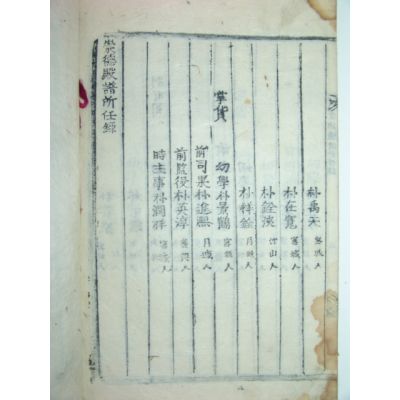 朴禹天 密城人
朴在寬 密城人
朴銓浹 山人
朴祥銓 月城人
掌貨
幼學朴景鶴 密城人
前司果朴進熙 月城人
前監役朴英淳 人
時主事朴潤祥 密城人
崇德殿譜所任錄